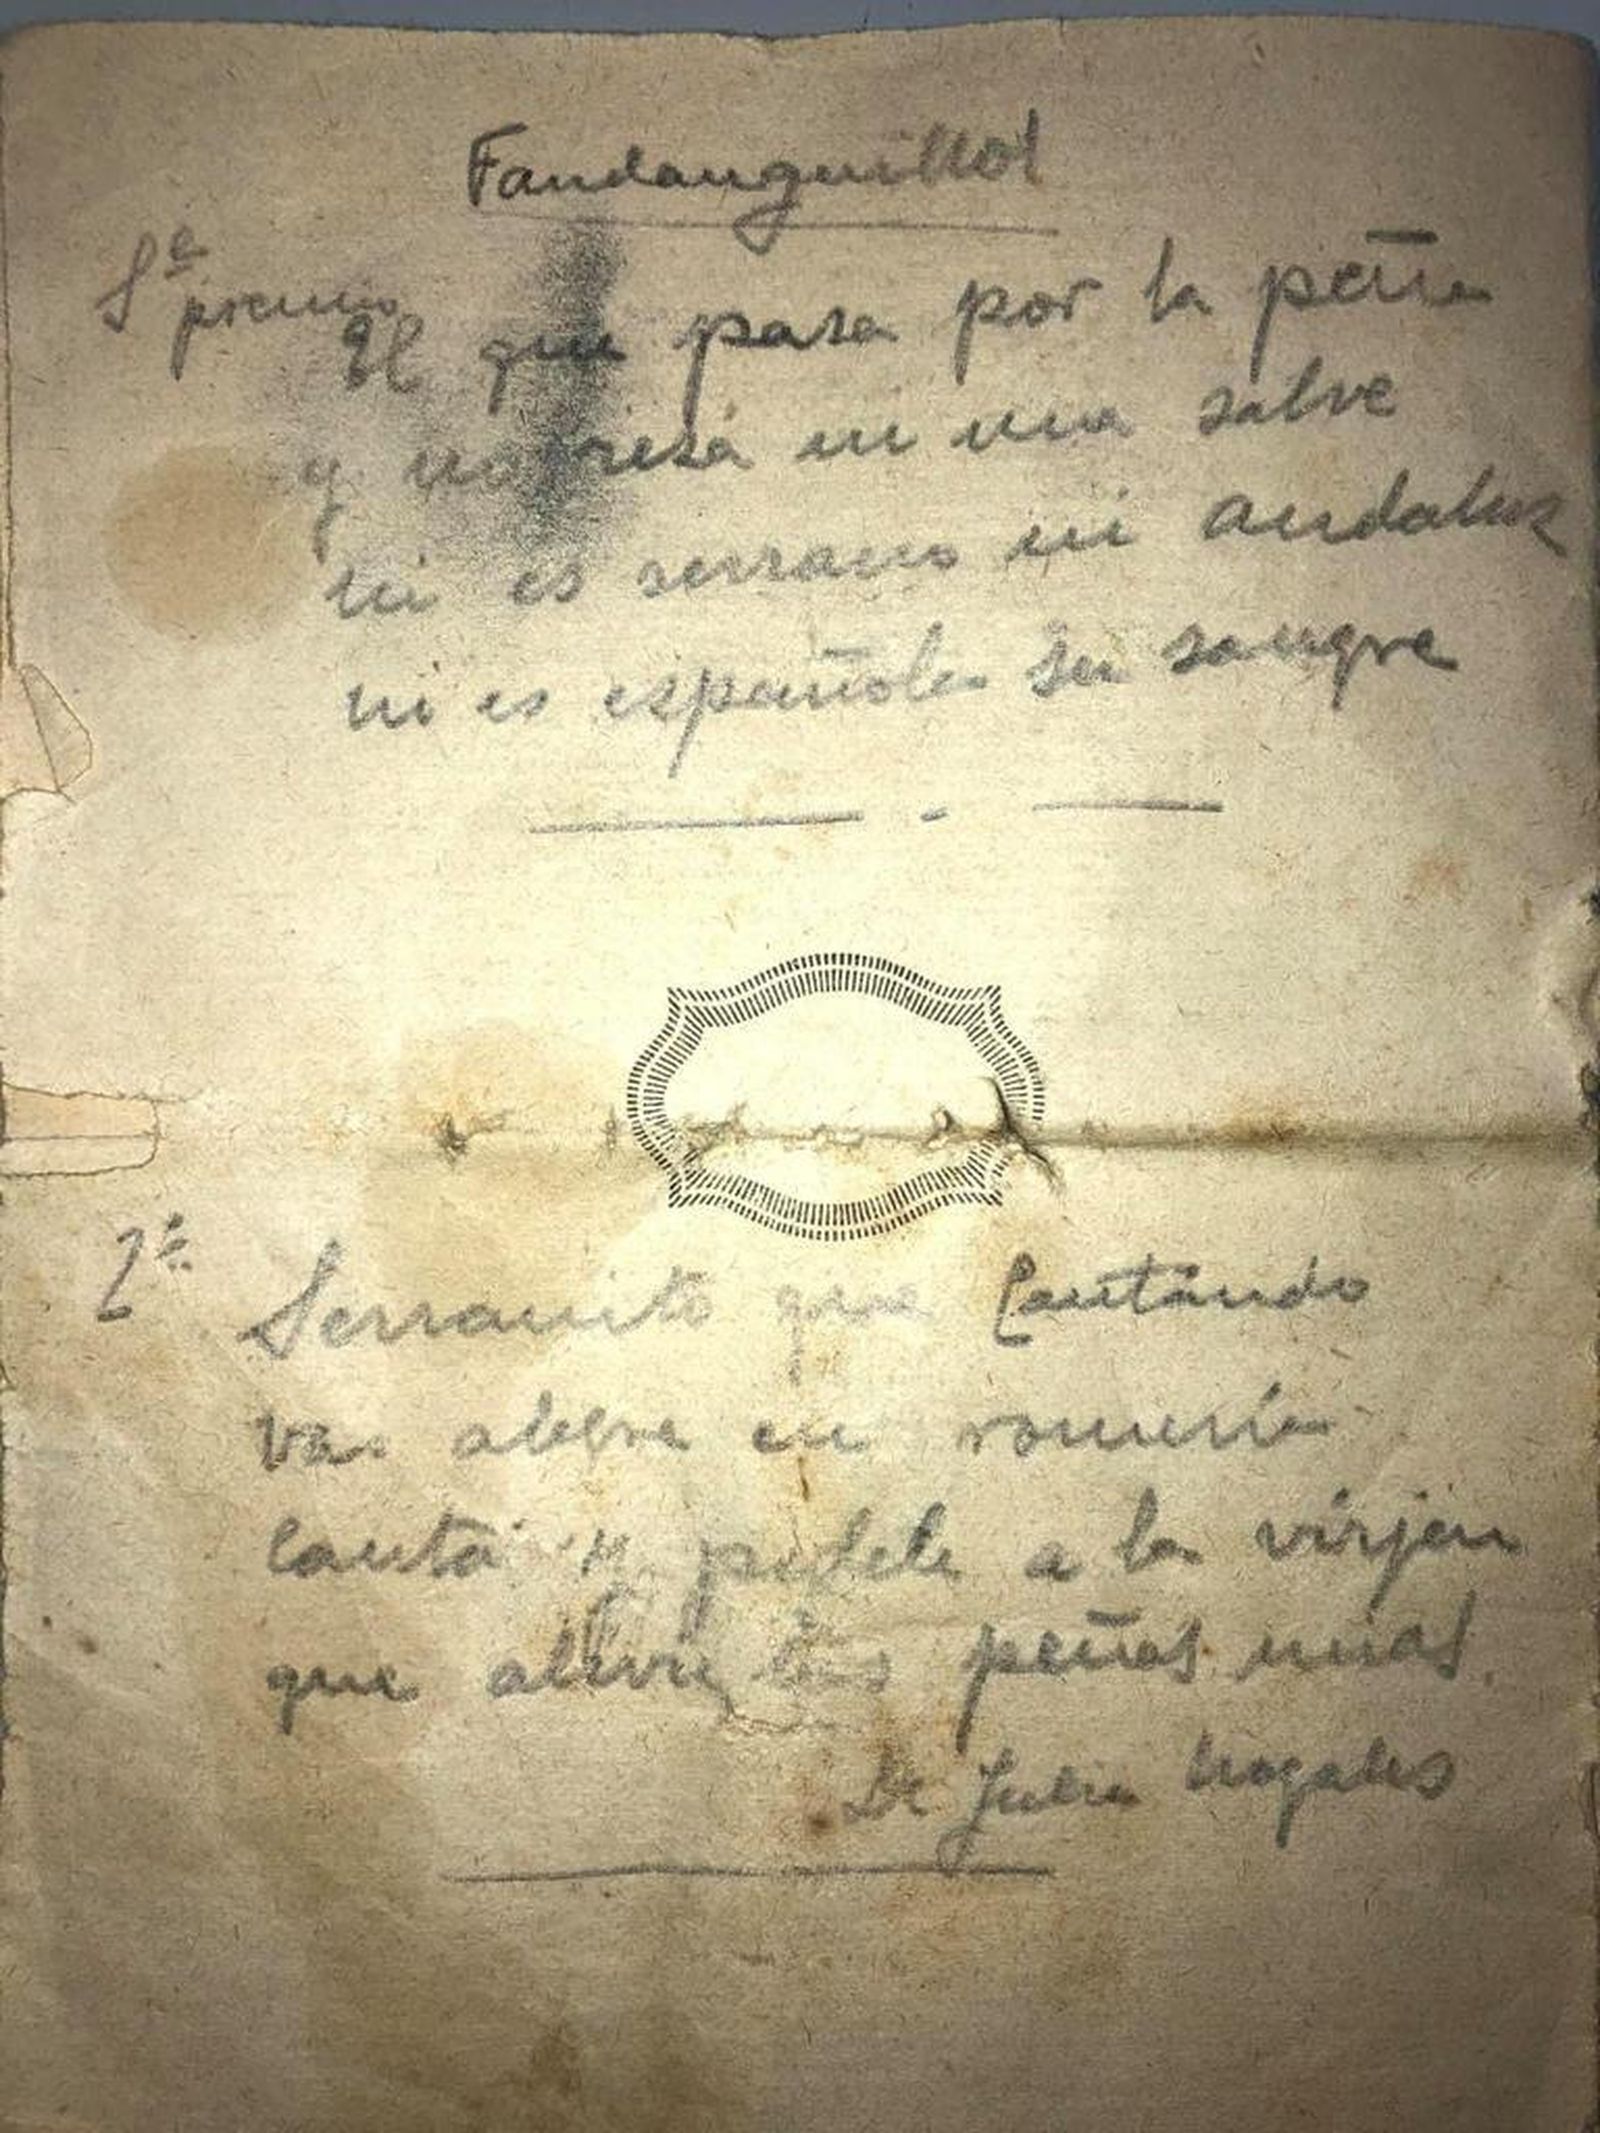 Fandanguillos
premio
El que pasa por la peña
y no resa ni una salve
ni es serrano ni andaluz
ni es española su sangre
2ª
Serranito que Cantando
vas alegre en romería
Canta y pidele a la virjen
que alivie las peñas mias.
De Julia Nogales